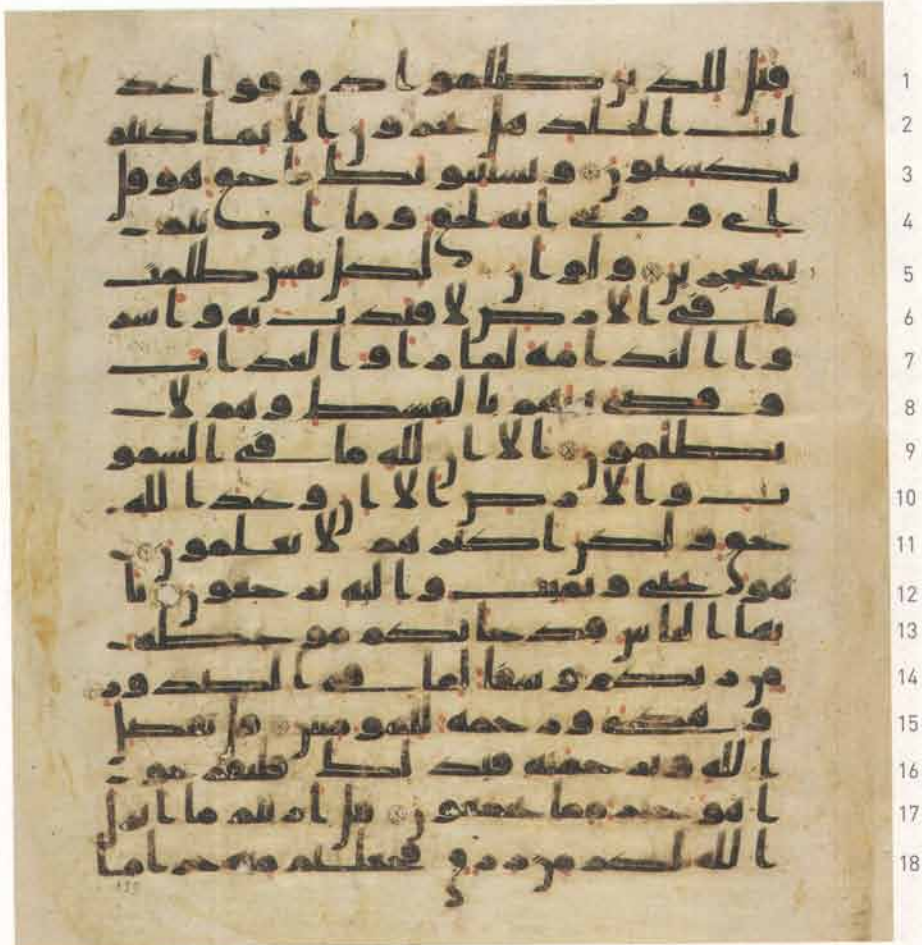 1 قيل للذين ظلموا ذوقوا عذ
2 اب الخلد هل تجزون الا بما كنتم
3 تكسبون ويستنبونك احق هو قل
4 اي وربي انه لحق وما انتم
5 بمعجزين ولو ان لكل نفس ظلمت
6 ما في الارض لافتدت به واسر
7 وا الندامة لما راوا العذاب
8 وقضي بينهم بالقسط وهم لا
9 يظلمون الا ان لله ما في السمو
10 ت والارض الا ان وعد الله
11 حق ولكن اكثرهم لا يعلمون
12 هو يحيي ويميت واليه ترجعون يا
13 يها الناس قد جاتكم موعظة
14 من ربكم وشفا لما في الصدور
15 وهدى ورحمة للمومنين قل بفضل
16 الله وبرحمته فبذلك فليفرحو
17 ا هو خير مما يجمعون قل اريتم ما انزل
18 الله لكم من رزق فجعلتم منه حراما